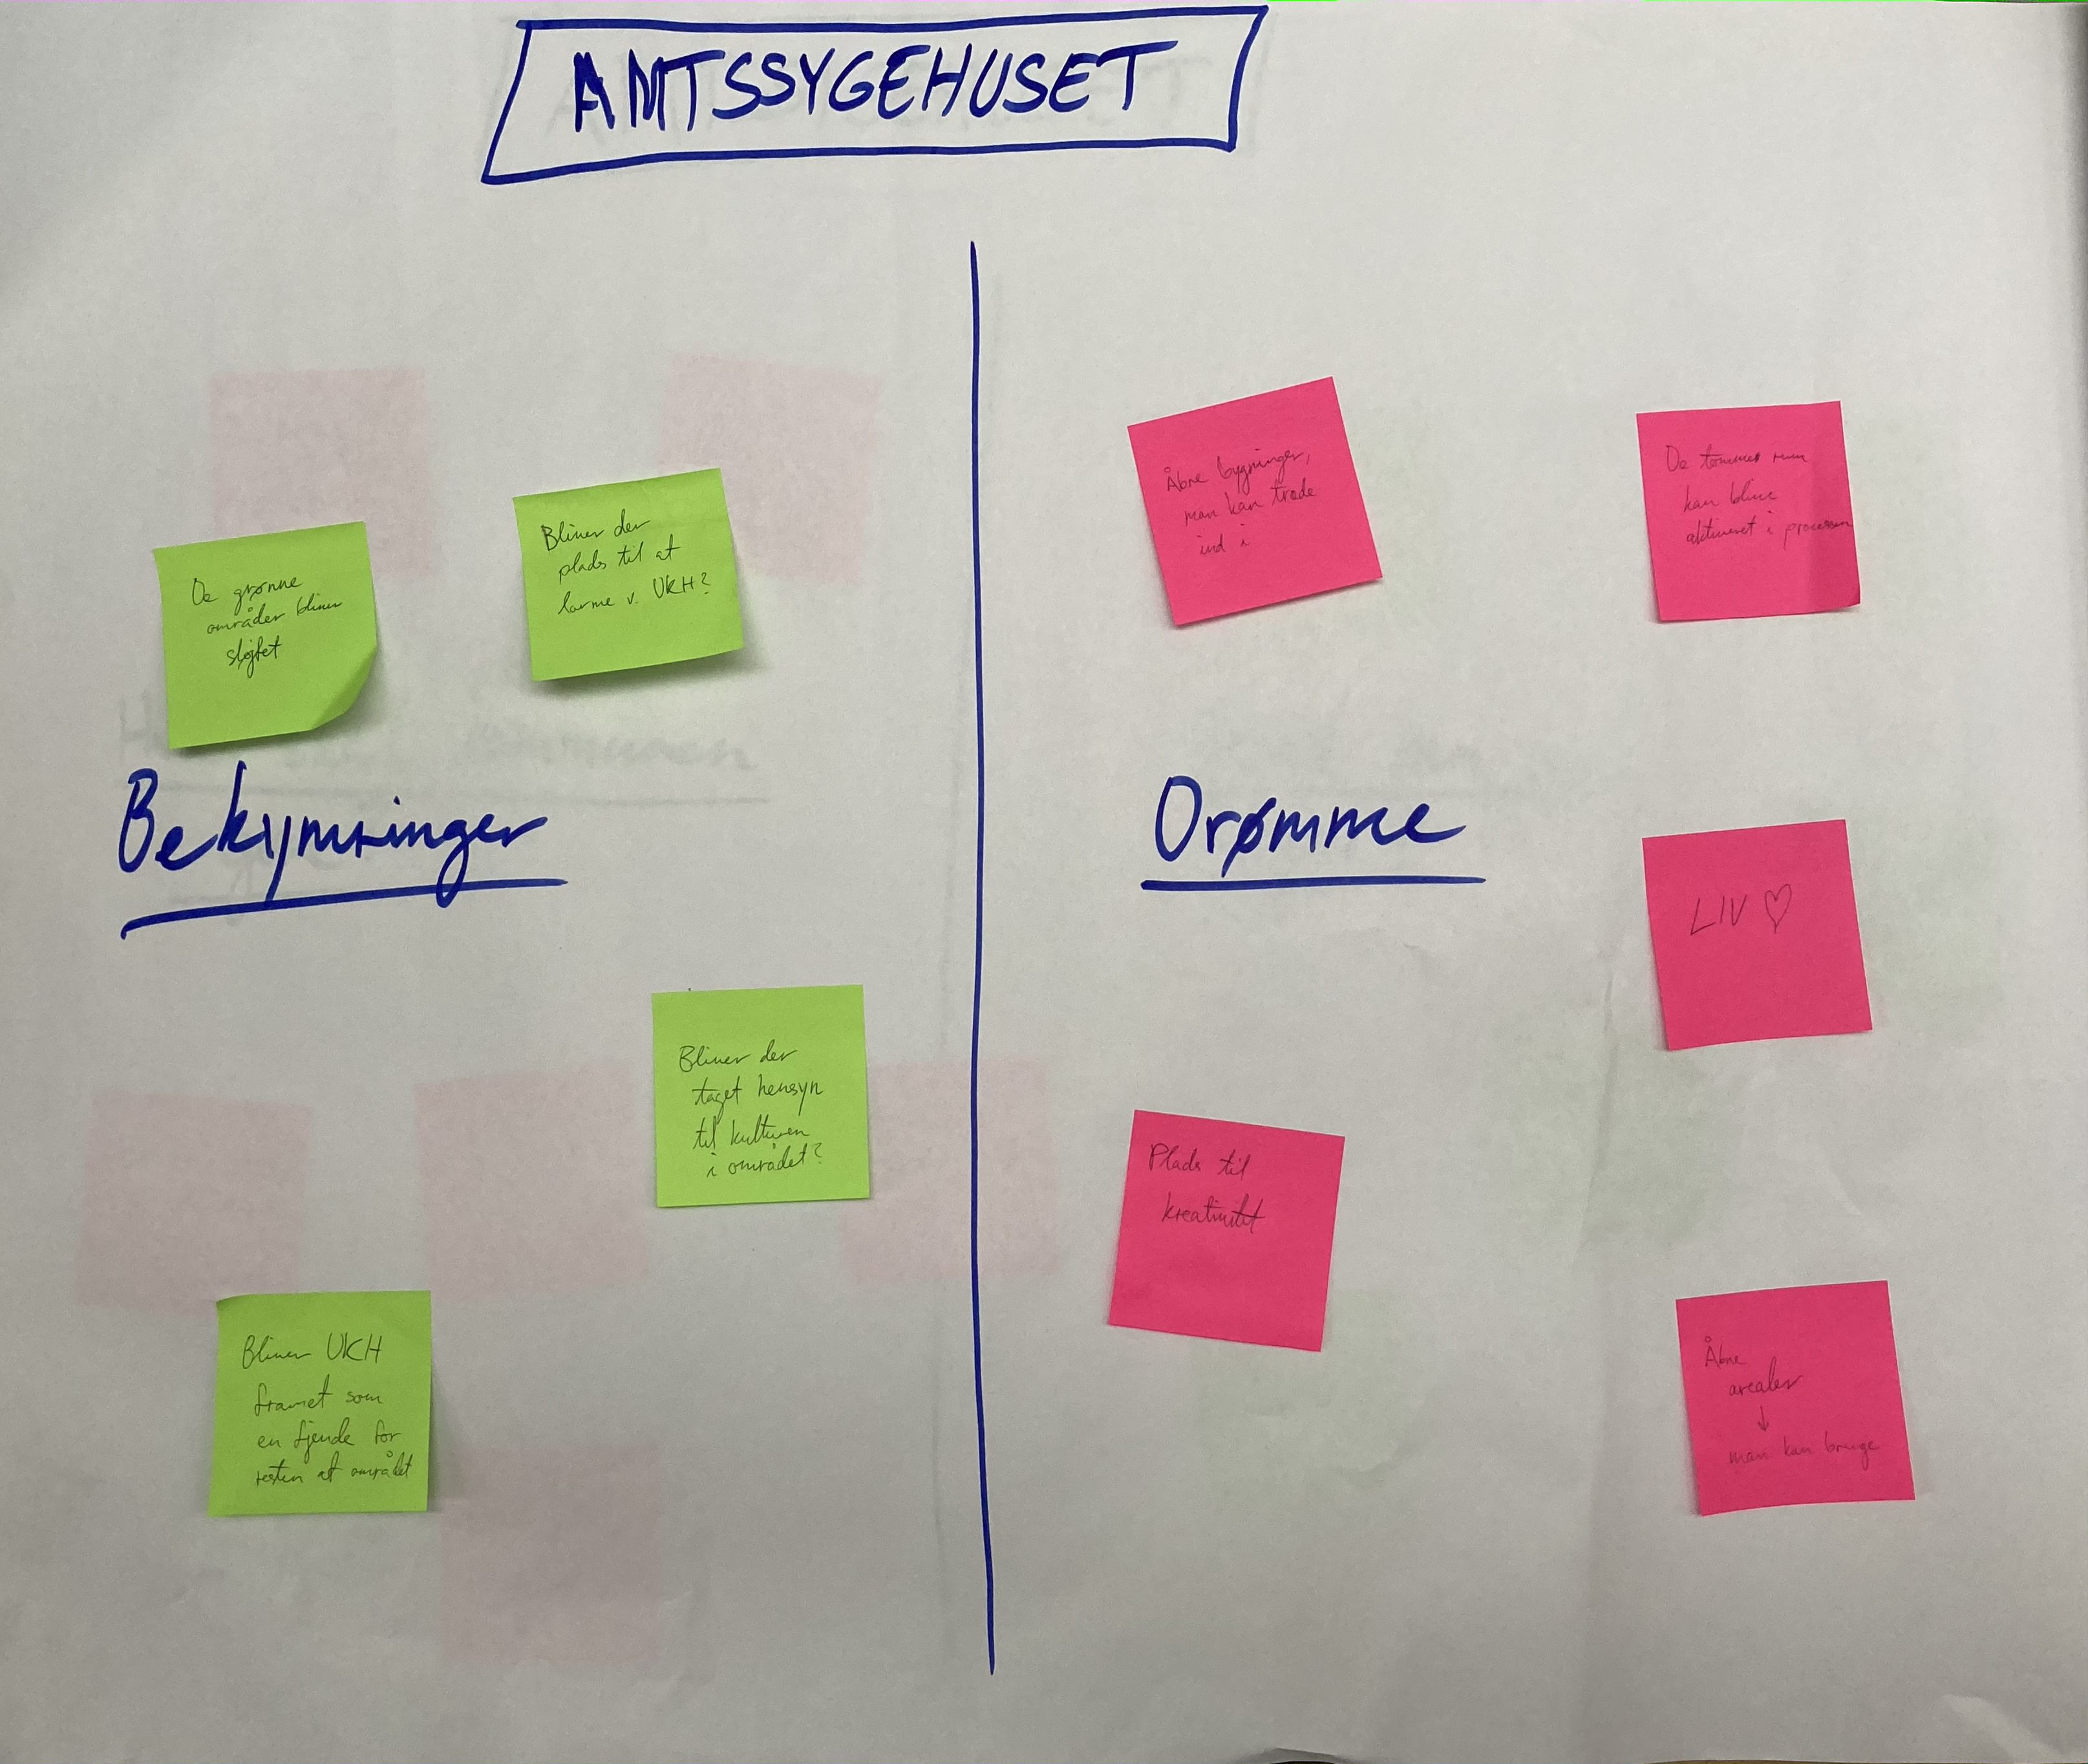 AMTSSYGEHUSET
De grønne
områder bliver
sløjfet
Bliver der
plads til at
larme v. UKH?
Bekymringer
Bliver der
taget hensyn
til kulturen
i området?
Bliver UKH
framet som
en fjende for
resten af området
Åbne bygninger,
man kan træde
ind i
De tomme rum
kan blive
aktiveret i processen
Drømme
LIV ♡
Plads til
kreativitet
Åbne
arealer
↓
man kan bruge